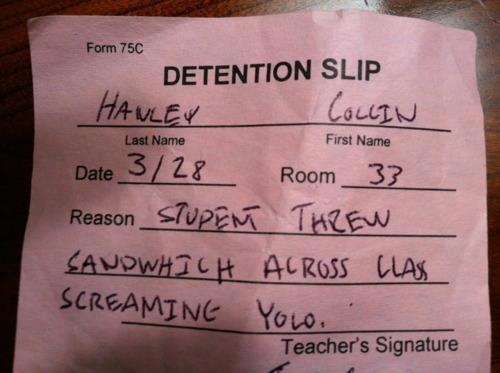 Form 75C
DETENTION SLIP
HANLEY COLLIN
Last Name First Name
Date 3/28 Room 33
Reason STUPENT THREW
SANDWHICH ACROSS CLASS
SCREAMING YOLO.
Teacher's Signature